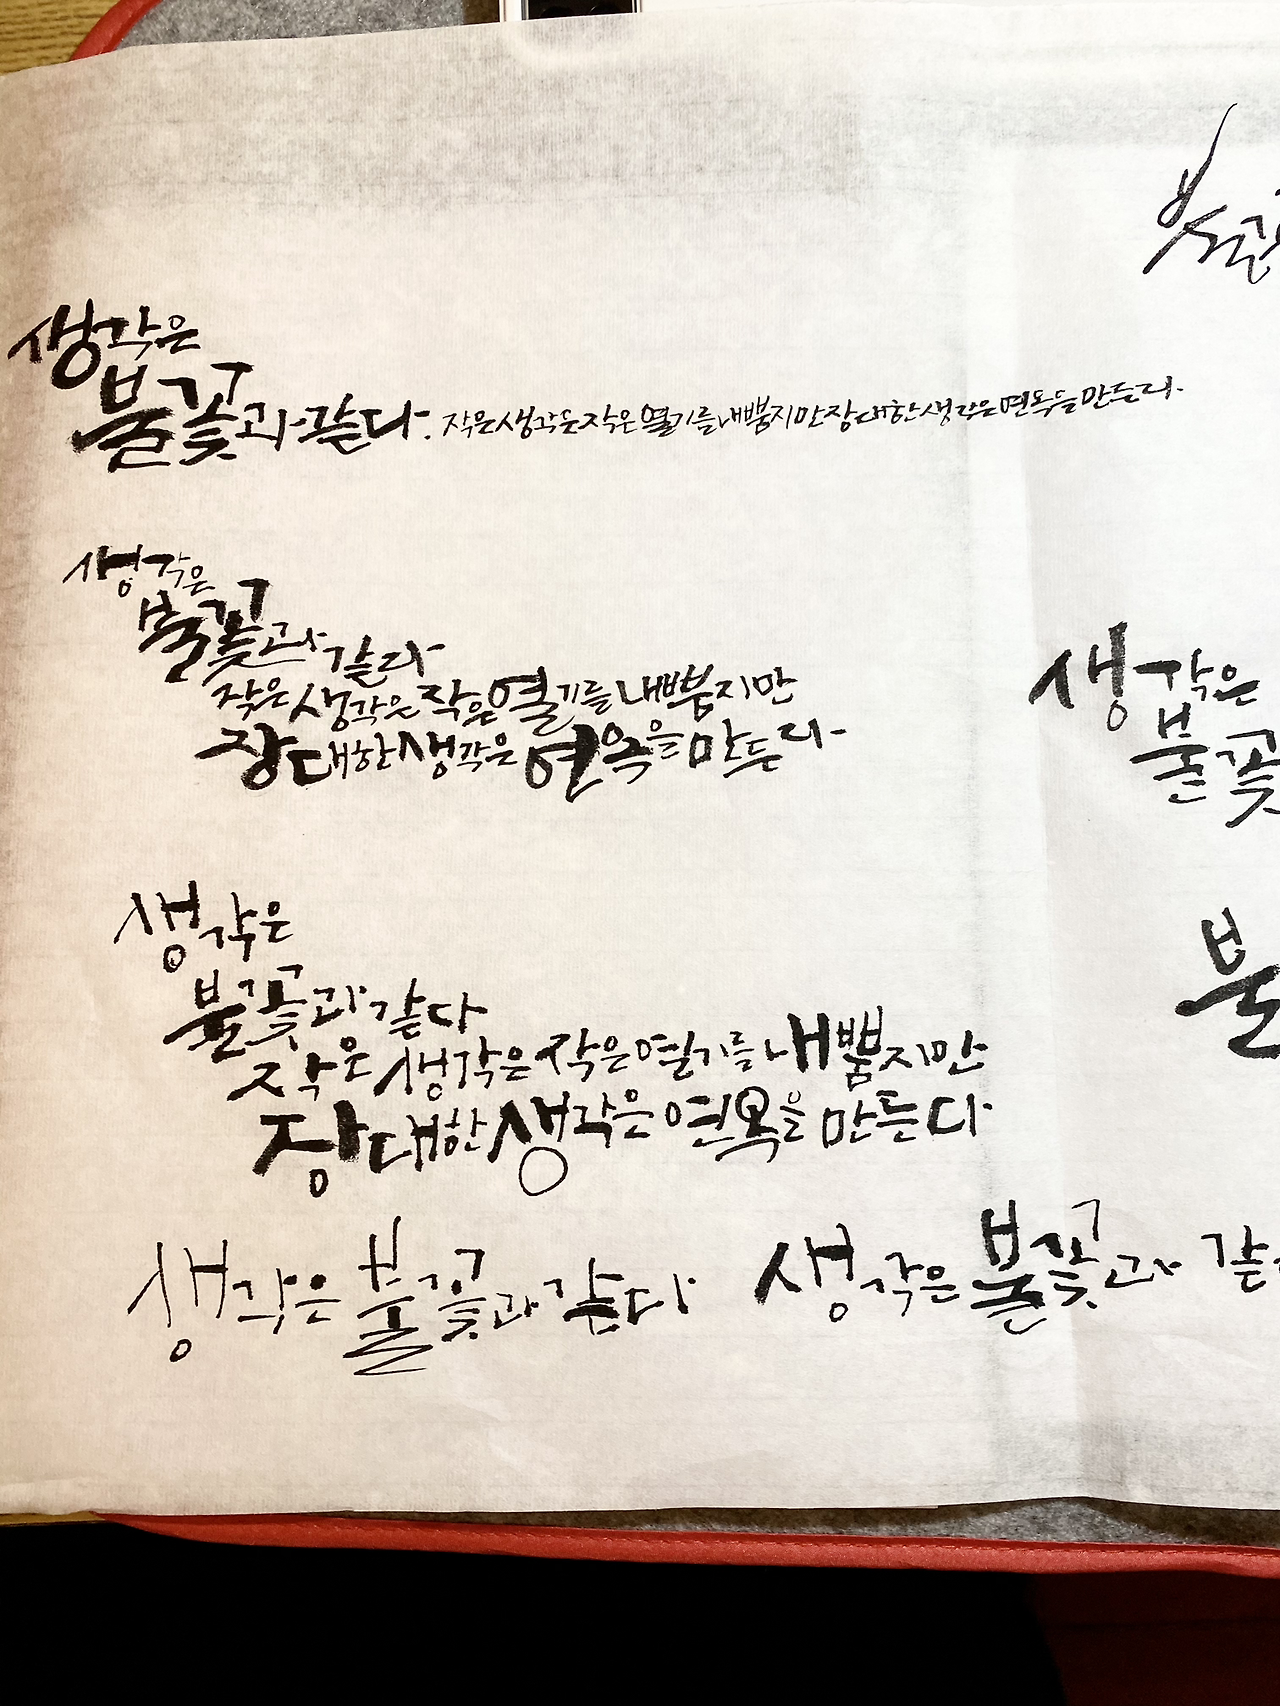 생각은
불꽃과 같다. 작은 생각은 작은 열기를 내뿜지만 장대한 생각은 연옥을 만든다.
생각은
불꽃과 같다
작은 생각은 작은 열기를 내뿜지만
장대한 생각은 연옥을 만든다.
생각은
불꽃과 같다
작은 생각은 작은 열기를 내뿜지만
장대한 생각은 연옥을 만든다
생각은 불꽃과 같다
생각은 불꽃과 같
불꽃
생각은
불꽃
불